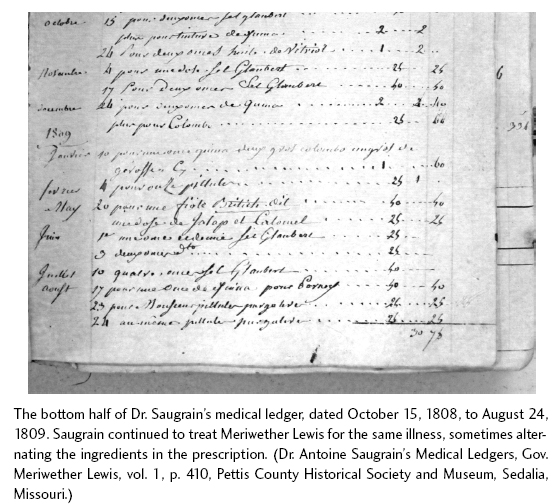 octobre 15 pour deux onces sel glaubert
plus pour teinture de quina 2 2
24 Pour deux onces huile de Vitriol 1 2
Novembre 4 pour une dose Sel Glaubert 25 25
17 Pour Deux onces Sel Glaubert 40 40
Decembre 24 pour deux onces de quina 2 2 40
plus pour Colombo 25 60
1809
10 pour une once quina deux gros colombo
1 60
fevrier 4 pour pillules 25 1
May 20 pour une fiole British oil 40 40
une dose de Jalap et Calomel 25 25
Juin 1 Sel Glaubert 25
3 deux onces dto 25
Juillet 10 quatre once Sel Glaubert 40
aoust 17 pour une once de quina pour Perney 40 40
23 pour Monsieur pillule purgative 25 25
24 au même pillule purgative 25 25
30 75
6
The bottom half of Dr. Saugrain's medical ledger, dated October 15, 1808, to August 24,
1809. Saugrain continued to treat Meriwether Lewis for the same illness, sometimes alter-
nating the ingredients in the prescription. (Dr. Antoine Saugrain's Medical Ledgers, Gov.
Meriwether Lewis, vol. 1, p. 410, Pettis County Historical Society and Museum, Sedalia,
Missouri.)